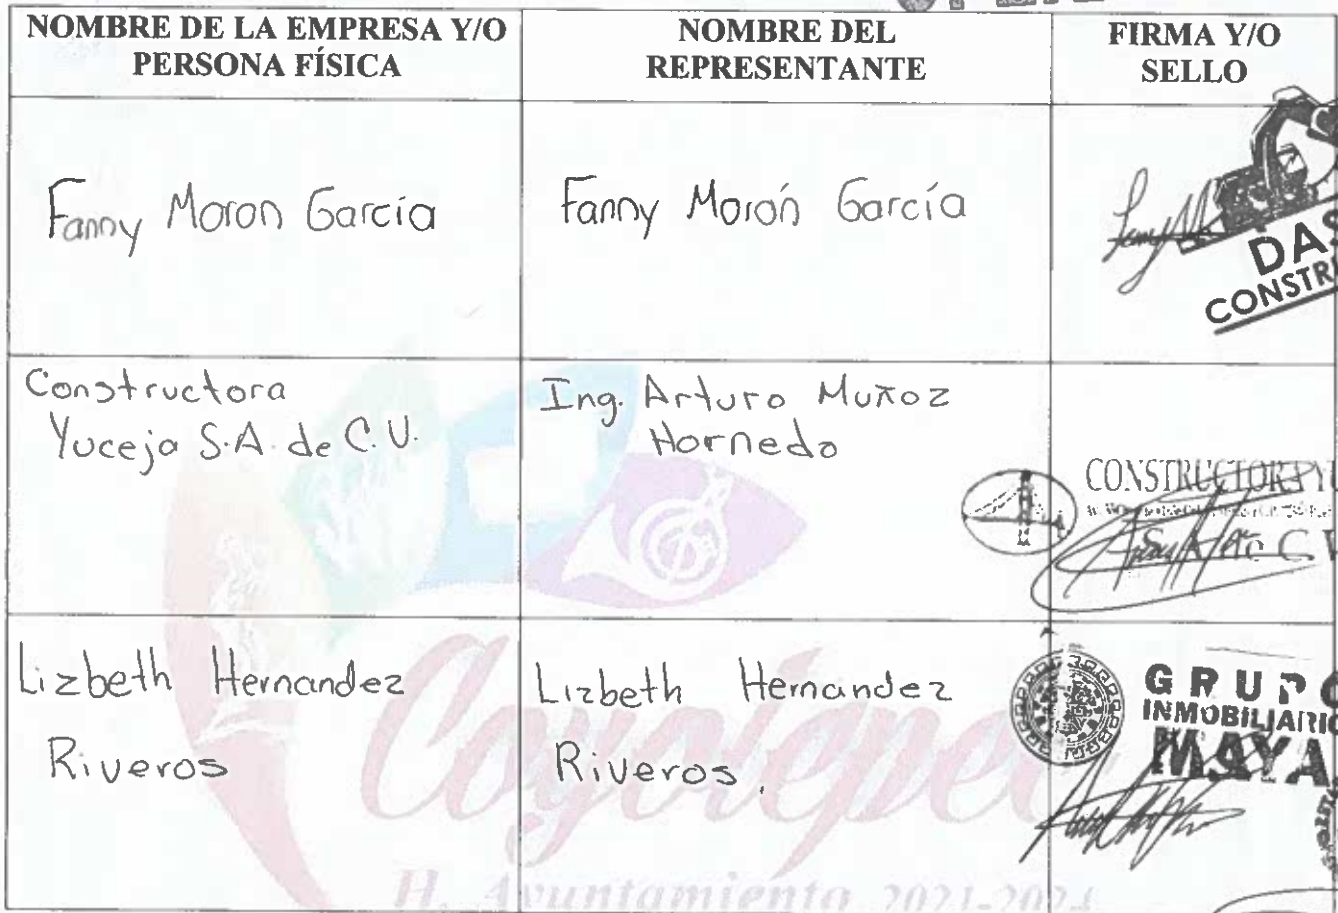 NOMBRE DE LA EMPRESA Y/O
PERSONA FÍSICA
NOMBRE DEL
REPRESENTANTE
FIRMA Y/O
SELLO
Fanny Moron García
Fanny Morón García
DAS
CONSTR
Constructora
Yuceja S.A. de C.V.
Ing. Arturo Muñoz
Hornedo
CONSTRUCTORA YU
C V
Lizbeth Hernandez
Riveros
Lizbeth Hernandez
Riveros.
GRUPO
INMOBILIARIO
MAYA
Coyotepec
H. Ayuntamiento 2021-2024